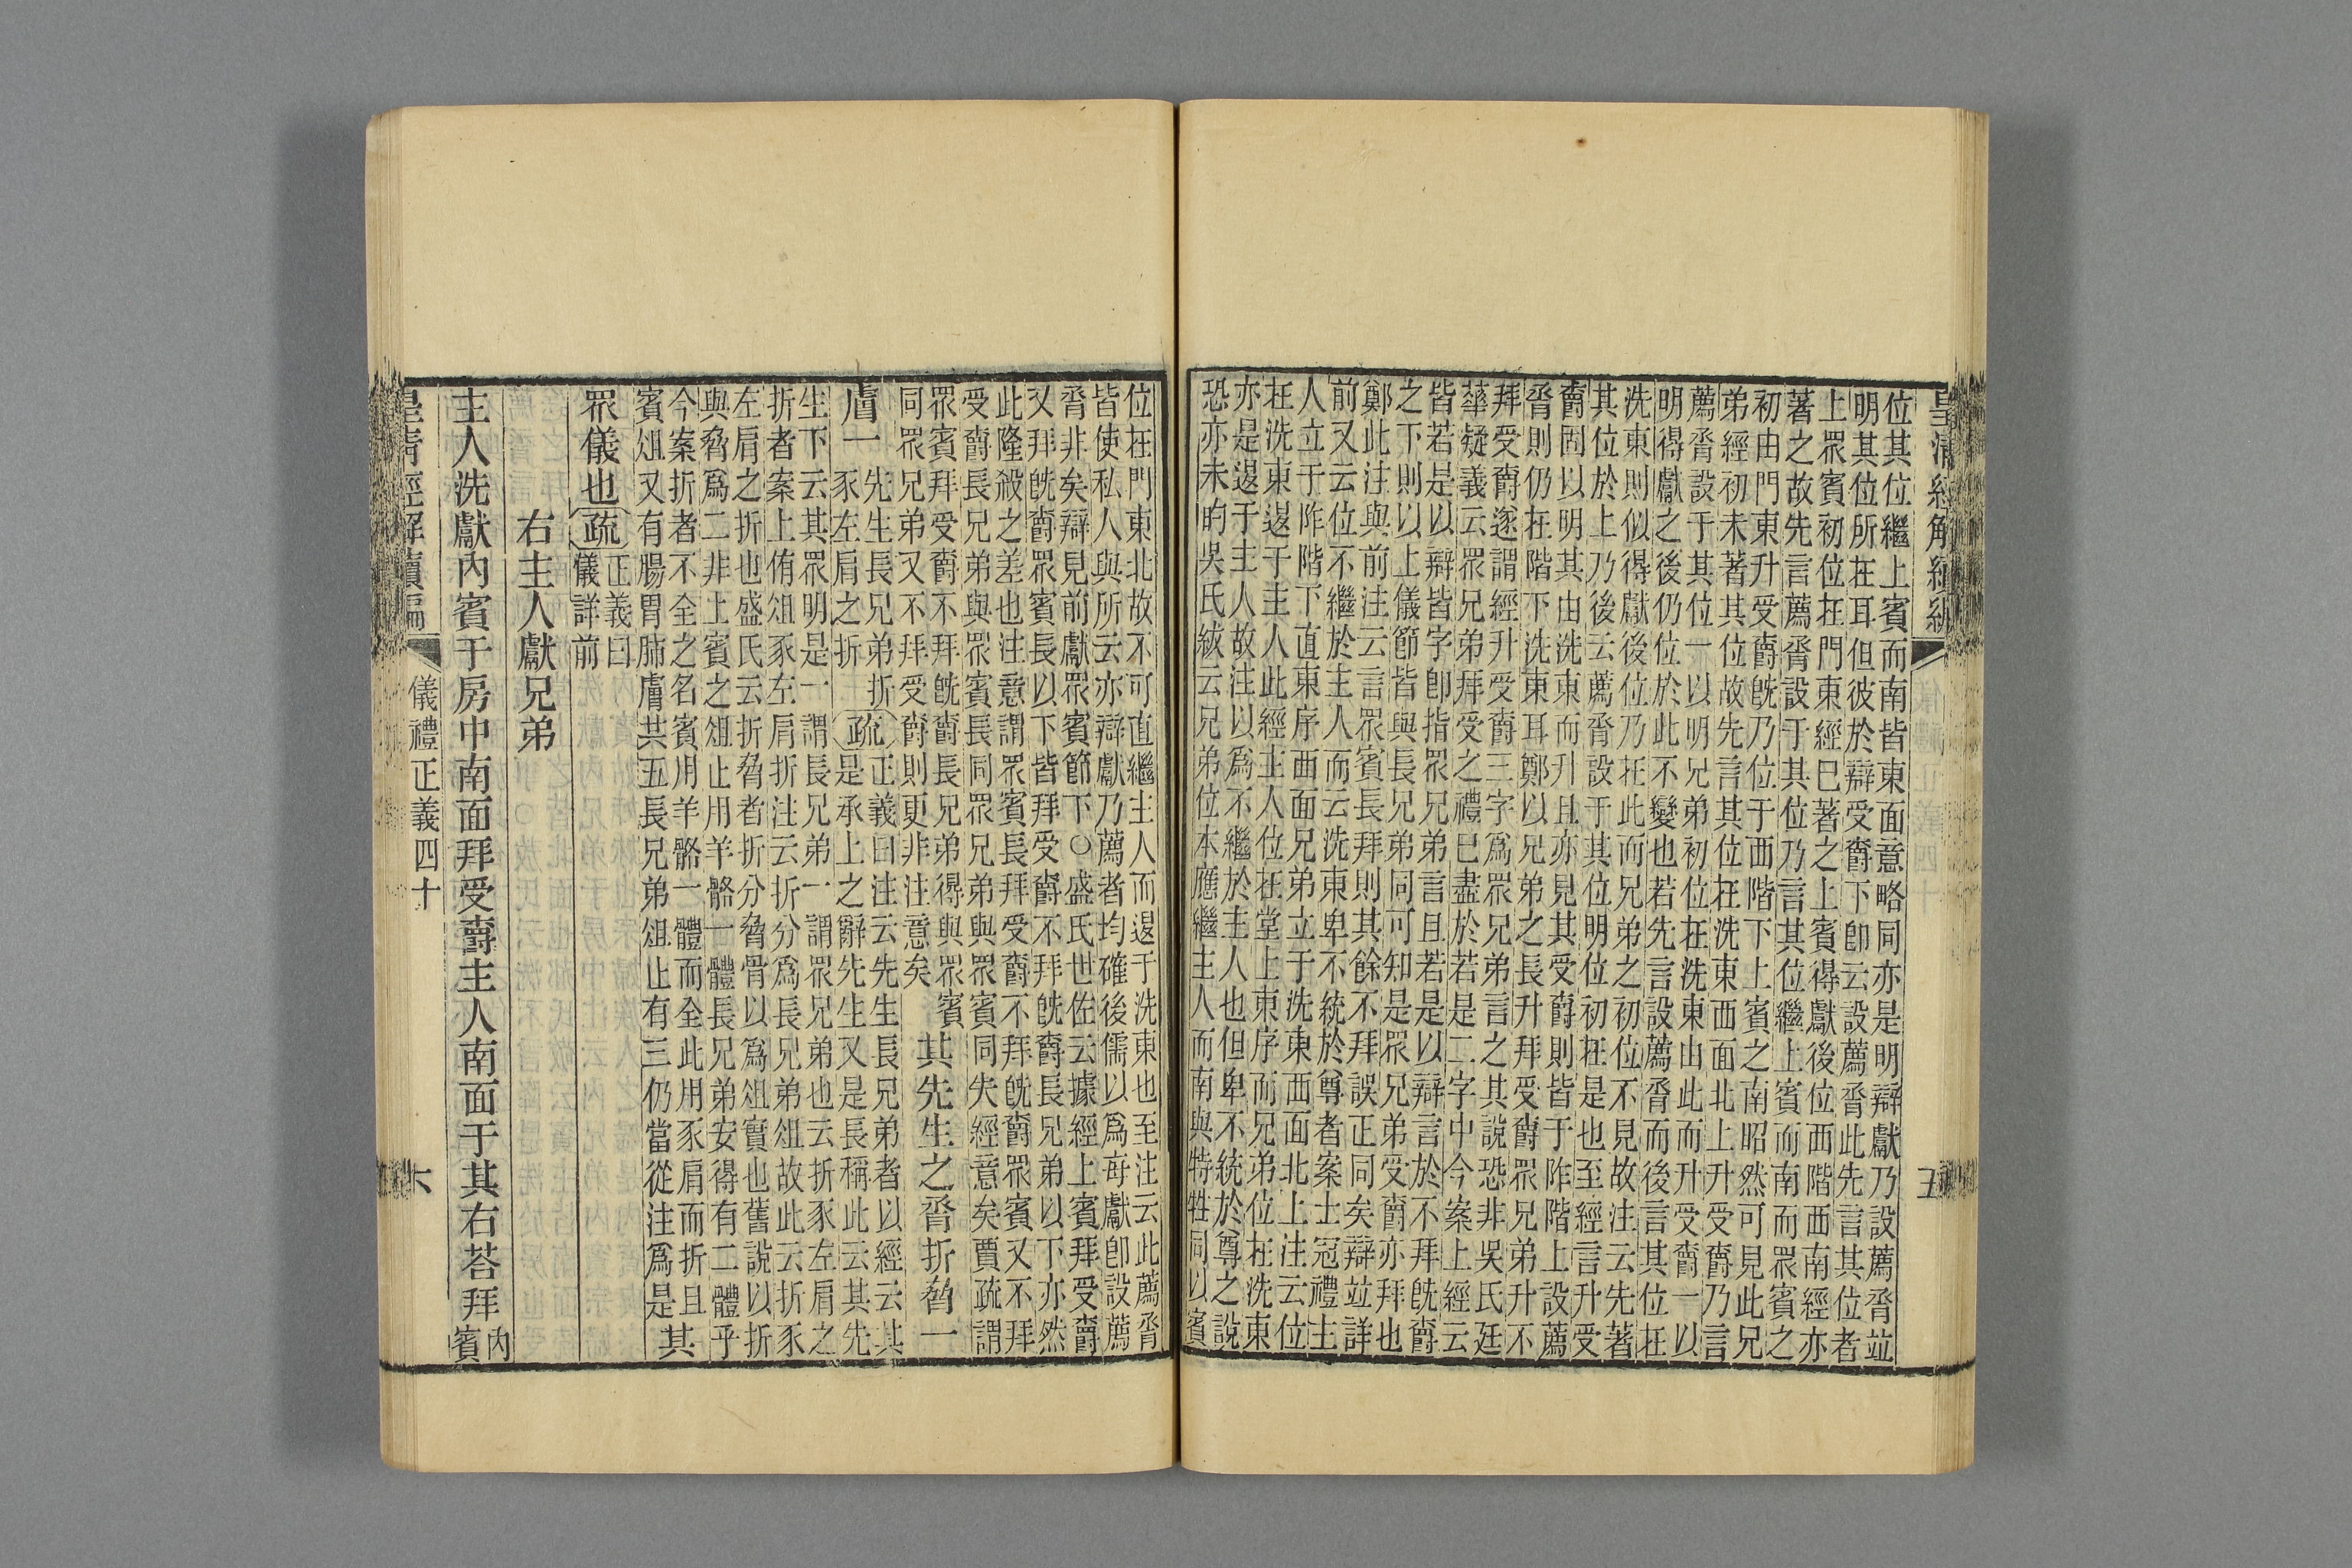 皇清經解續編
五
位其位繼上賓而南皆東面意略同亦是明辯獻乃設薦脀竝
明其位所在耳但彼於辯受爵下卽云設薦脀此先言其位者
上眾賓初位在門東經巳著之上賓得獻後位西階西南經亦
著之故先言薦脀設于其位乃言其位繼上賓而南而眾賓之
初由門東升受爵旣乃位于西階下上賓之南昭然可見此兄
弟經初未著其位故先言其位在洗東西面北上升受爵乃言
薦脀設于其位一以明兄弟初位在洗東由此而升受爵一以
明得獻之後仍位於此不變也若先言設薦脀而後言其位在
洗東則似得獻後位乃在此而兄弟之初位不見故注云先著
其位於上乃後云薦脀設于其位明位初在是也至經言升受
爵固以明其由洗東而升且亦見其受爵則皆于阼階上設薦
脀則仍在階下洗東耳鄭以兄弟之長升拜受爵眾兄弟升不
拜受爵遂謂經升受爵三字爲眾兄弟言之其說恐非吳氏廷
華疑義云眾兄弟拜受之禮巳盡於若是二字中今案上經云
皆若是以辯皆字卽指眾兄弟言且若是以辯言於不拜旣爵
之下則以上儀節皆與長兄弟同可知是眾兄弟受爵亦拜也
鄭此注與前注云言眾賓長拜則其餘不拜誤正同矣辯竝詳
前又云位不繼於主人而云洗東卑不統於尊者案士冠禮主
人立于阼階下直東序西面兄弟立于洗東西面北上注云位
在洗東逡于主人此經主人位在堂上東序而兄弟位在洗東
亦是逡于主人故注以爲不繼於主人也但卑不統於尊之說
恐亦未旳吳氏紱云兄弟位本應繼主人而南與特牲同以賓
位在門東北故不可直繼主人而逡于洗東也至注云此薦脀
皆使私人與所云亦辯獻乃薦者均確後儒以爲每獻卽設薦
脀非矣辯見前獻眾賓節下○盛氏世佐云據經上賓拜受爵
又拜旣爵眾賓長以下皆拜受爵不拜旣爵長兄弟以下亦然
此隆殺之差也注意謂眾賓長拜受爵不拜旣爵眾賓又不拜
受爵長兄弟與眾賓長同眾兄弟與眾賓同失經意矣賈疏謂
眾賓拜受爵不拜旣爵長兄弟得與眾賓
同眾兄弟又不拜受爵則更非注意矣
其先生之脀折脅一
膚一
先生長兄弟折
豕左肩之折
疏
正義曰注云先生長兄弟者以經云其
是承上之辭先生又是長稱此云其先
生下云其眾明是一謂長兄弟一謂眾兄弟也云折豕左肩之
折者案上侑俎豕左肩折注云折分爲長兄弟俎故此云折豕
左肩之折也盛氏云折脅者折分脅骨以爲俎實也舊說以折
與脅爲二非上賓之俎止用羊骼一體長兄弟安得有二體乎
今案折者不全之名賓用羊骼一體而全此用豕肩而折且
賓俎又有腸胃肺膚共五長兄弟俎止有三仍當從注爲是
其
眾儀也
疏
正義曰
儀詳前
右主人獻兄弟
主人洗獻內賓于房中南面拜受爵主人南面于其右荅拜
內
賓
皇清經解續編
儀禮正義四十
六